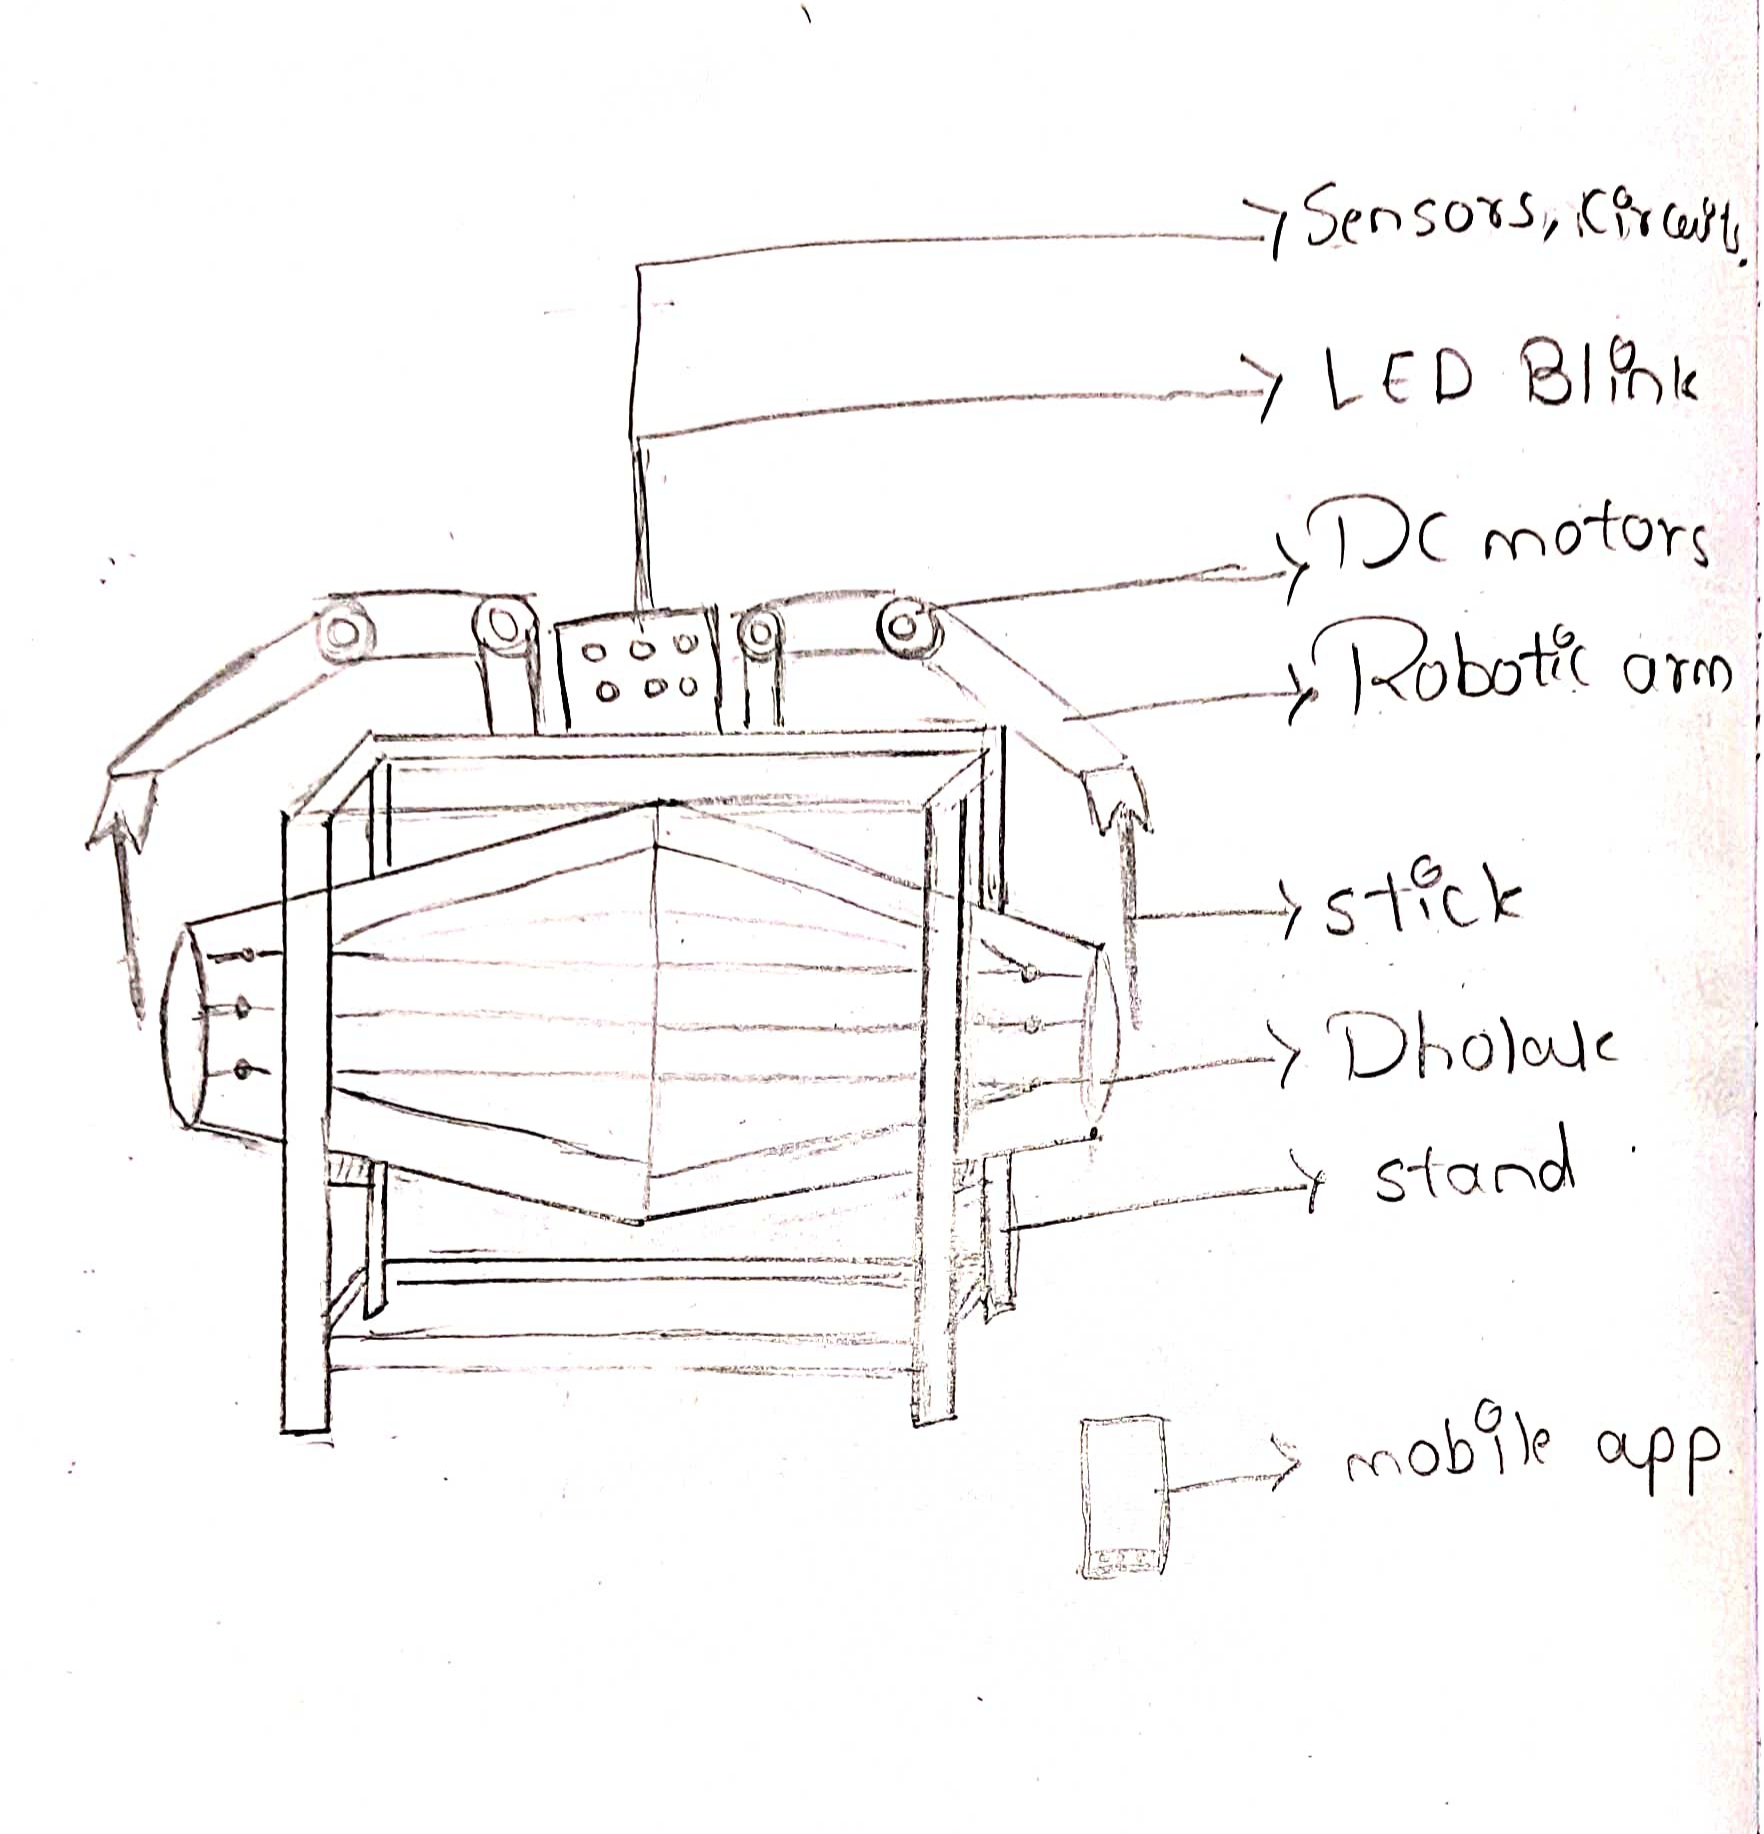 Sensors, Circuits.
LED Blink
DC motors
Robotic arm
stick
Dholak
stand
mobile app.